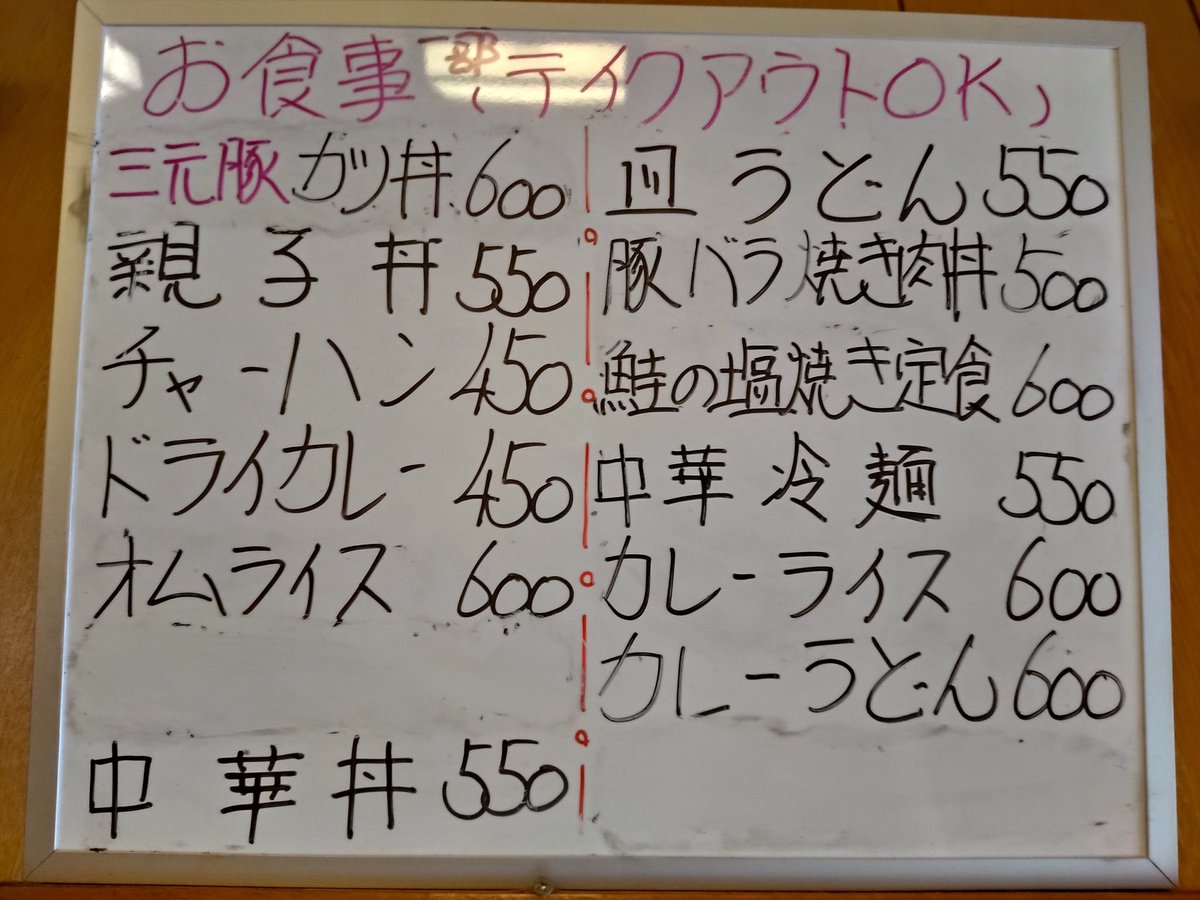 お食事 一部(テイクアウトOK)
三元豚カツ丼 600
親子丼 550
チャーハン 450
ドライカレー 450
オムライス 600
中華丼 550
皿うどん 550
豚バラ焼き肉丼 500
鮭の塩焼き定食 600
中華冷麺 550
カレーライス 600
カレーうどん 600